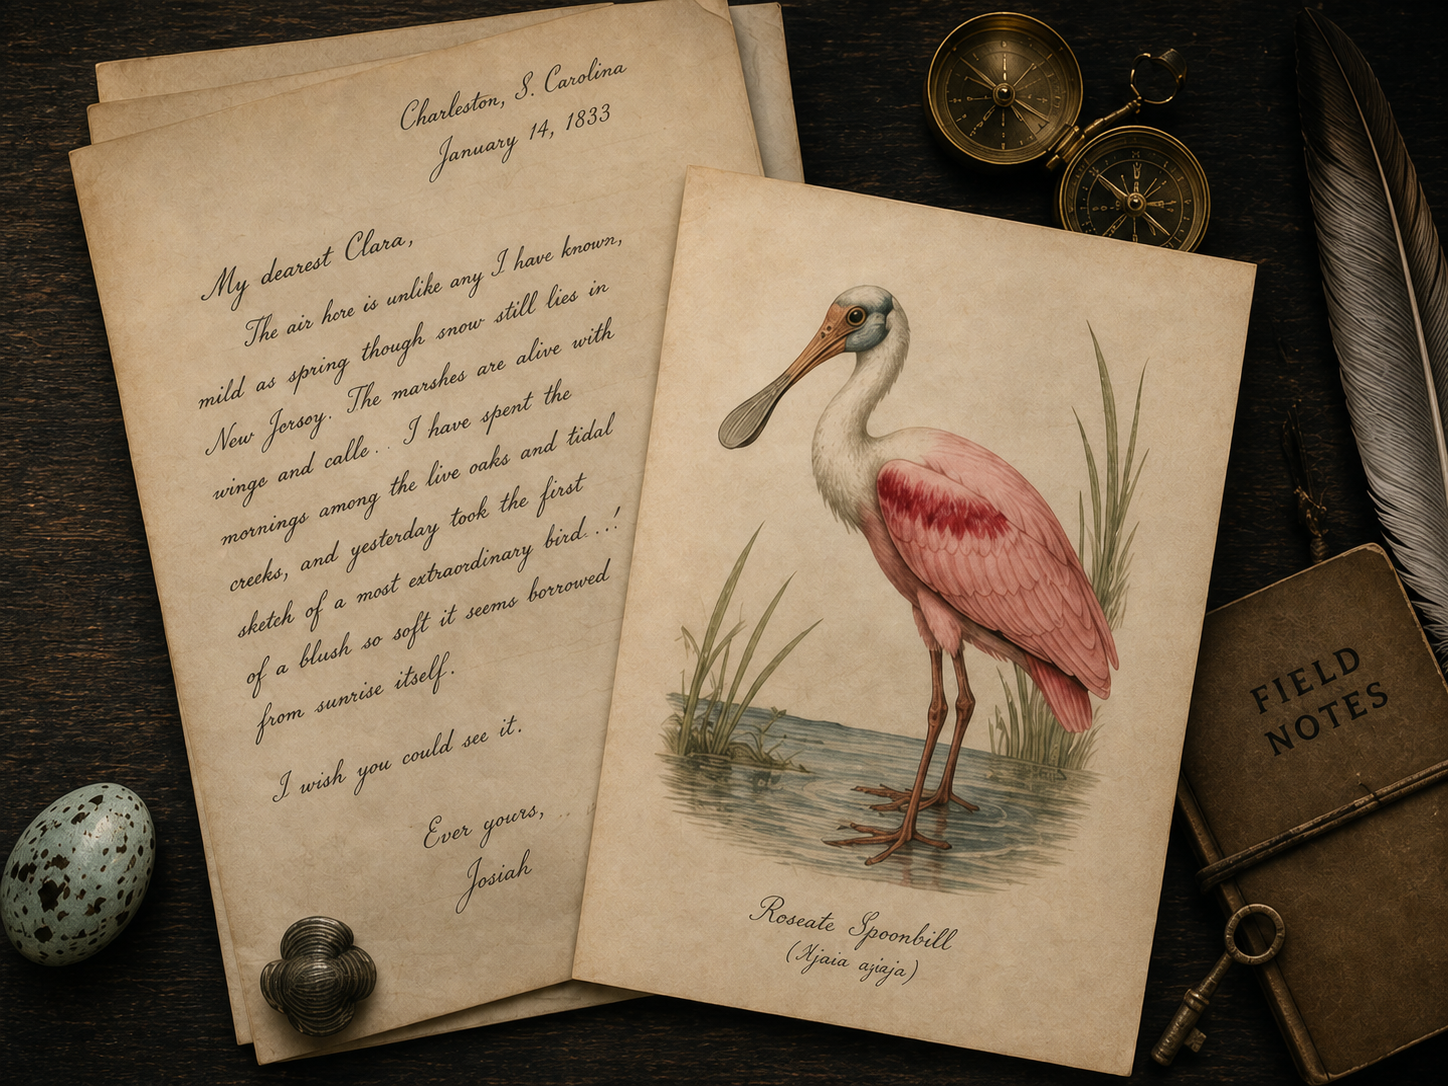 Charleston, S. Carolina
January 14, 1833
My dearest Clara,
The air here is unlike any I have known,
mild as spring though snow still lies in
New Jersoy. The marshes are alive with
wings and calle.. I have spent the
mornings among the live oaks and tidal
creeks, and yesterday took the first
sketch of a most extraordinary bird...!
of a blush so soft it seems borrowed
from sunrise itself.
I wish you could see it.
Ever yours,
Josiah
Roseate Spoonbill
(Ajaia ajaja)
FIELD
NOTES